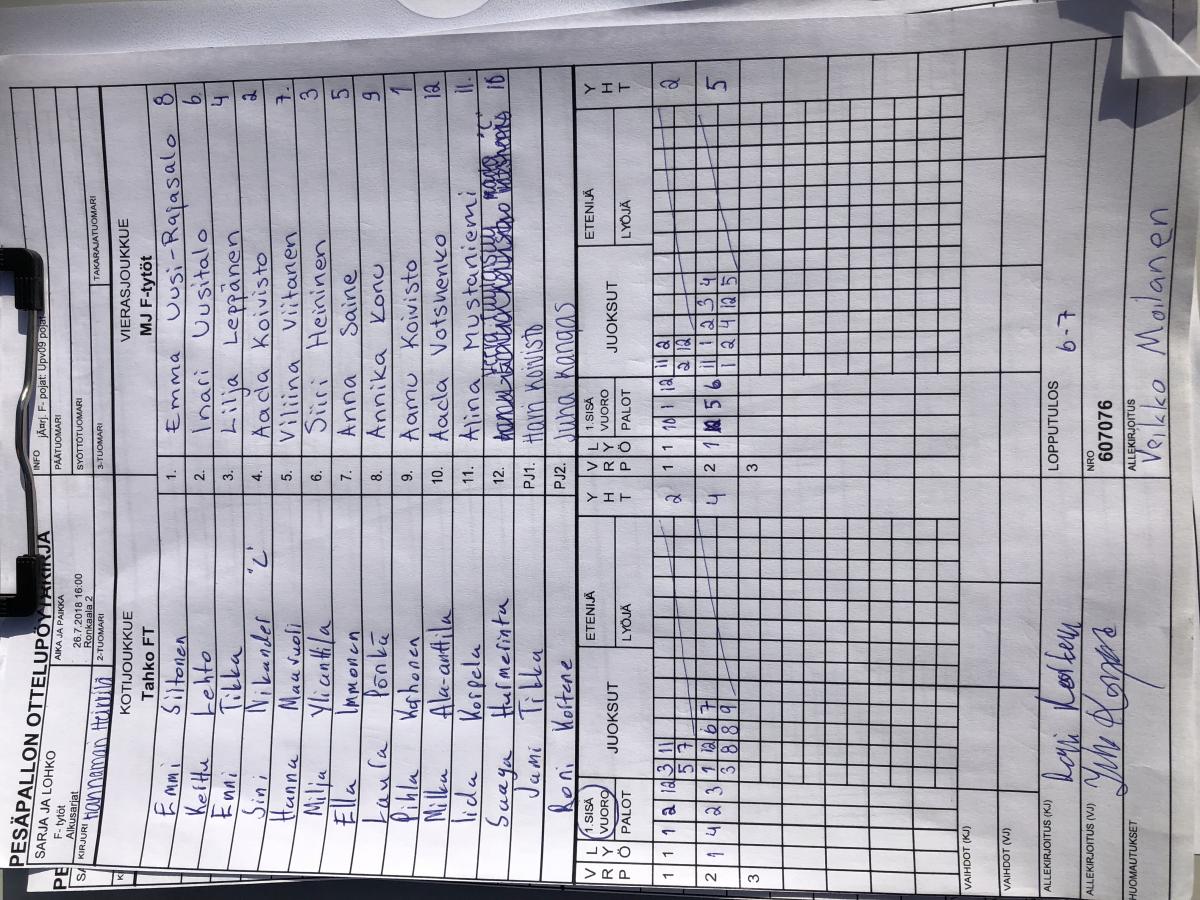 PESÄPALLON OTTELUPÖYTÄKIRJA
SARJA JA LOHKO
F- tytöt
Alkusarjat
AIKA JA PAIKKA
26.7.2018 16:00
Ronkaala 2
INFO
F- pojat: Upv09 pojat
PÄÄTUOMARI
SYÖTTÖTUOMARI
KIRJURI
2-TUOMARI
3-TUOMARI
TAKARAJATUOMARI
KOTIJOUKKUE
Tahko FT
VIERASJOUKKUE
MJ F-tytöt
Emmi Siltonen 1. Emma Uusi-Rajasalo 8
Kerttu Lehto 2. Inari Uusitalo 6
Enni Tikka 3. Lilja Leppänen 4
Sini Nikander "C" 4. Aada Koivisto 2
Hanna Mauruoli 5. Viliina Viitanen 7.
Milja Ylianttila 6. Siiri Heininen 3
Ella Immonen 7. Anna Saine 5
Laura Pörkü 8. Annika Konu 9
Pihla Kerhonen 9. Aamu Koivisto 1
Milka Ala-anttila 10. Aada Votshenko 12
Iida Korpela 11. Alina Mustaniemi 11.
Saaga Hurmerinta 12. 10
Jami Tikka PJ1. Harri Koivisto
Roni Kortene PJ2. Juha Kangas
V R P L Y Ö 1.SISÄ VUORO PALOT JUOKSUT ETENIJÄ LYÖJÄ Y H T V R P L Y Ö 1.SISÄ VUORO PALOT JUOKSUT ETENIJÄ LYÖJÄ Y H T
1 1 1 2 12 3 11 2 1 1 10 1 12 11 2 2
5 7 2 12
2 1 4 2 3 1 12 6 7 4 2 1 5 6 11 1 2 3 4 5
3 8 8 9 1 2 4 12 5
3 3
VAIHDOT (KJ)
VAIHDOT (VJ)
ALLEKIRJOITUS (KJ)
LOPPUTULOS 6-7
ALLEKIRJOITUS (VJ)
NRO
607076
HUOMAUTUKSET
ALLEKIRJOITUS
Veikko Moilanen